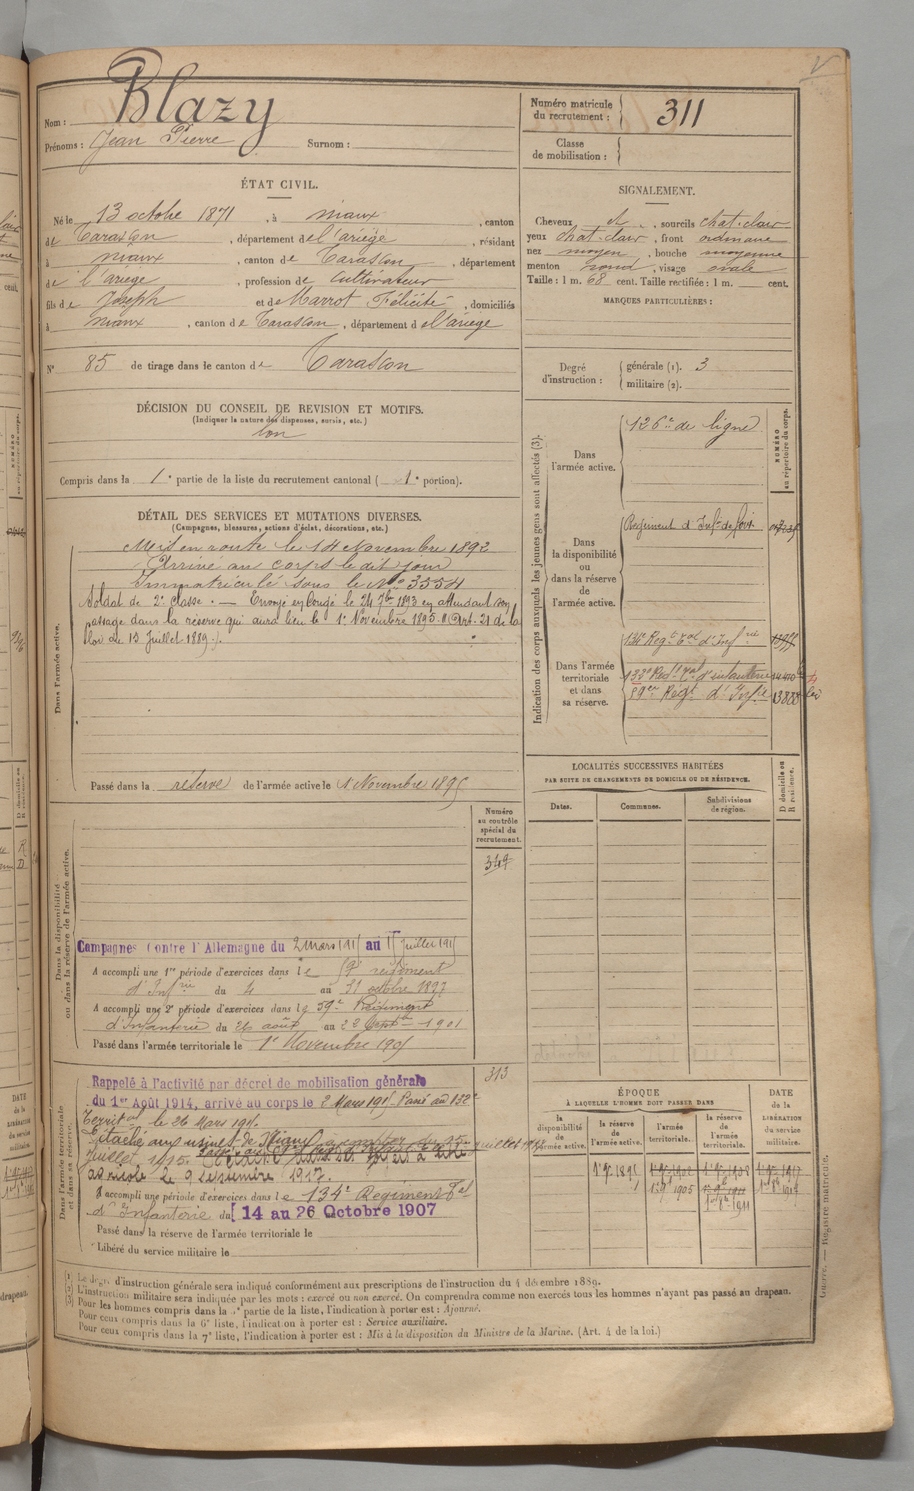 Nom : Blazy
Prénoms : Jean Pierre Surnom :
Numéro matricule du recrutement : 311
Classe de mobilisation :
ÉTAT CIVIL.
Né le 13 octobre 1871, à Niaux, canton
de Tarascon, département de l'ariège, résidant
à Niaux, canton de Tarascon, département
de l'ariège, profession de cultivateur
fils de Joseph et de Marrot Félicité, domiciliés
à Niaux, canton de Tarascon, département de l'ariège
N° 85 de tirage dans le canton de Tarascon
SIGNALEMENT.
Cheveux ch, sourcils chat-clair
yeux chat-clair, front ordinaire
nez moyen, bouche moyenne
menton rond, visage ovale
Taille : 1 m. 68 cent. Taille rectifiée : 1 m. cent.
MARQUES PARTICULIÈRES :
Degré d'instruction : générale (1). 3
militaire (2).
DÉCISION DU CONSEIL DE REVISION ET MOTIFS.
(Indiquer la nature des dispenses, sursis, etc.)
bon
Compris dans la 1e partie de la liste du recrutement cantonal (1e portion).
DÉTAIL DES SERVICES ET MUTATIONS DIVERSES.
(Campagnes, blessures, actions d'éclat, décorations, etc.)
Dans l'armée active.
Mis en route le 14 Novembre 1892
Arrivé au corps le dit jour
Immatriculé sous le No 3554
Soldat de 2e classe. — Envoyé en Congé le 24 7bre 1893 en attendant son
passage dans la réserve qui aura lieu le 1er Novembre 1895. (Art. 21 de la
loi du 15 Juillet 1889.)
Passé dans la réserve de l'armée active le 1r Novembre 1895
Indication des corps auxquels les jeunes gens sont affectés (3).
NUMÉRO au répertoire du corps.
Dans l'armée active.
126e de ligne
Dans la disponibilité ou dans la réserve de l'armée active.
Régiment d'Infie de Foix
Dans l'armée territoriale et dans sa réserve.
134e Regt Tal d'Infrie
133e Regt Tal d'infanterie
89e Regt d'Infie
LOCALITÉS SUCCESSIVES HABITÉES
PAR SUITE DE CHANGEMENTS DE DOMICILE OU DE RÉSIDENCE.
Dates. Communes. Subdivisions de région. D domicile ou R résidence.
Numéro au contrôle spécial du recrutement.
349
Dans la disponibilité ou dans la réserve de l'armée active.
Campagnes Contre l'Allemagne du 2 mars 1915 au juillet 191
A accompli une 1re période d'exercices dans le 59e régiment
d'Infrie du 4 au 31 octobre 1897
A accompli une 2e période d'exercices dans le 59e Régiment
d'Infanterie du 26 août au 22 Septbre 1901
Passé dans l'armée territoriale le 1r Novembre 1905
313
Dans l'armée territoriale et dans sa réserve.
Rappelé à l'activité par décret de mobilisation générale
du 1er Août 1914, arrivé au corps le 2 Mars 1915 Passé au 132e
Territal le 26 Mars 1915.
Détaché aux usines de
juillet 1915.
agricole le 9 décembre 1917.
A accompli une période d'exercices dans le 134e Régiment Tal
d'Infanterie du 14 au 26 Octobre 1907
Passé dans la réserve de l'armée territoriale le
Libéré du service militaire le
ÉPOQUE
À LAQUELLE L'HOMME DOIT PASSER DANS
la disponibilité de l'armée active. la réserve de l'armée active. l'armée territoriale. la réserve de l'armée territoriale. DATE de la LIBÉRATION du service militaire.
1r 9e 1895
(1) Le degré d'instruction générale sera indiqué conformément aux prescriptions de l'instruction du 4 décembre 1889.
(2) L'instruction militaire sera indiquée par les mots : exercé ou non exercé. On comprendra comme non exercés tous les hommes n'ayant pas passé au drapeau.
(3) Pour les hommes compris dans la 5e partie de la liste, l'indication à porter est : Ajourné.
Pour ceux compris dans la 6e liste, l'indication à porter est : Service auxiliaire.
Pour ceux compris dans la 7e liste, l'indication à porter est : Mis à la disposition du Ministre de la Marine. (Art. 4 de la loi.)
Guerre. — Registre matricule.